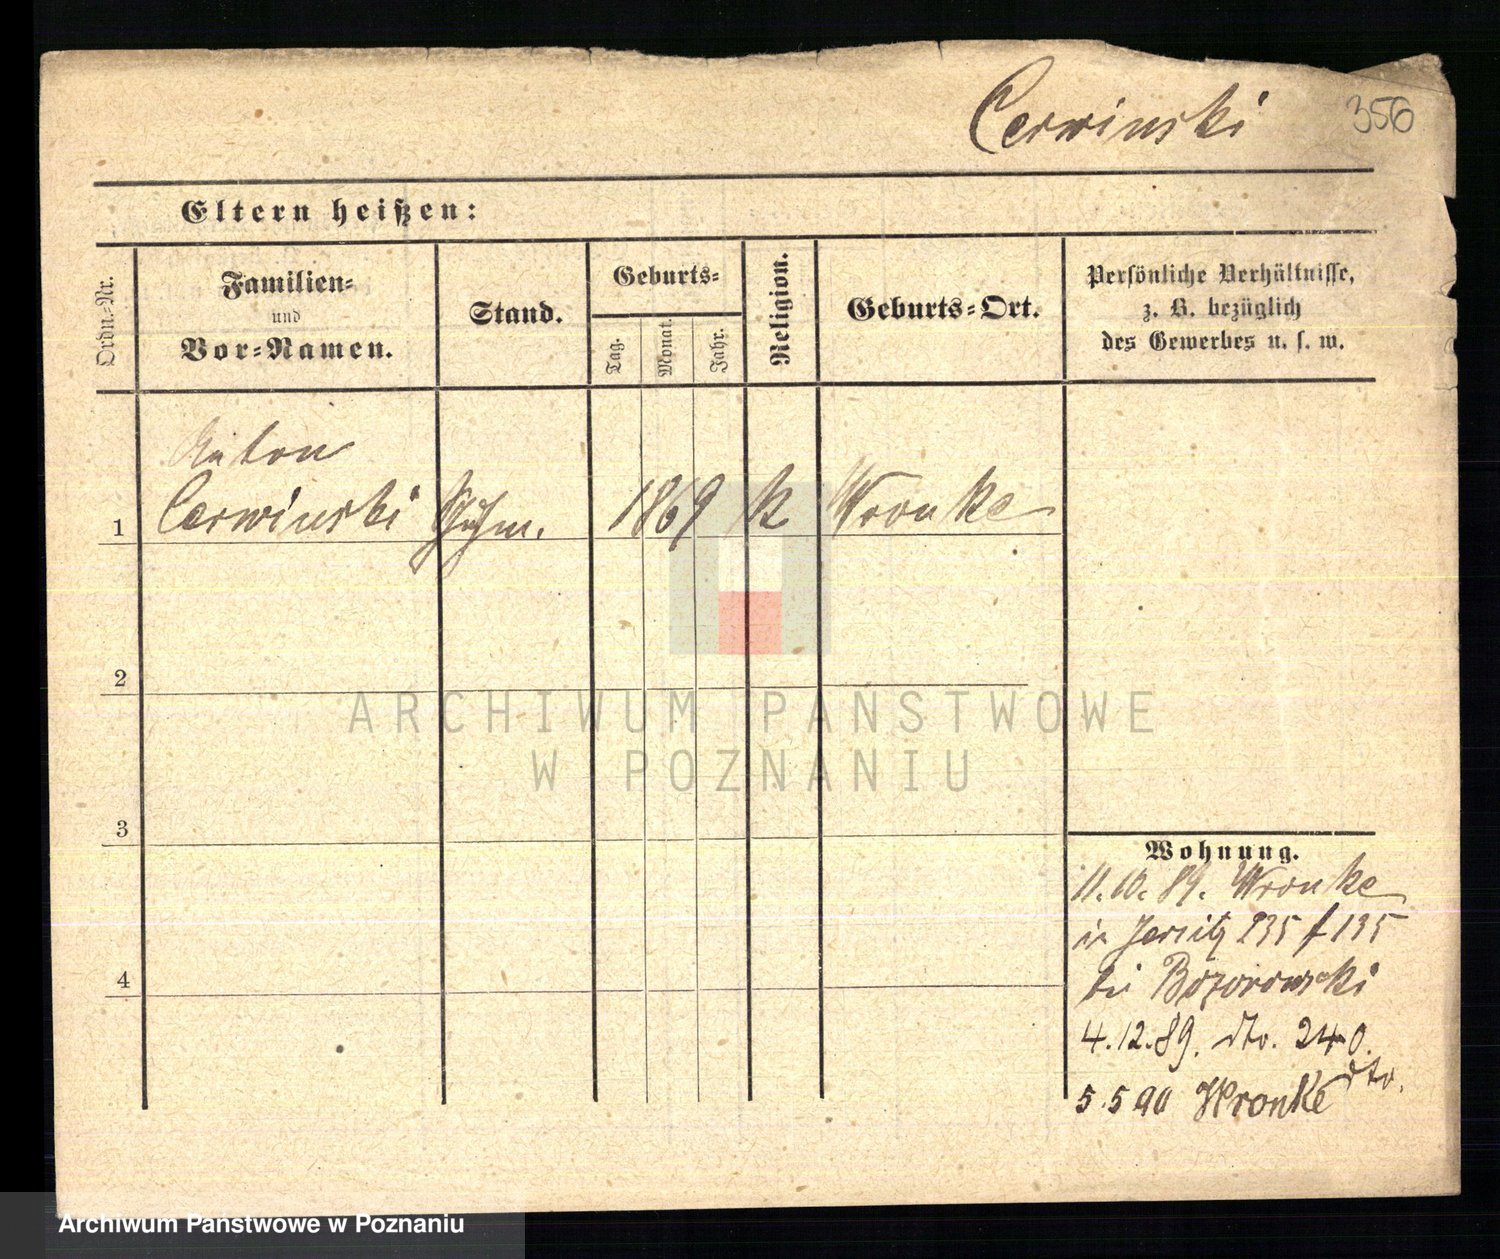 Cerwinski 356
Eltern heißen:
Ordn.-Nr.
Familien-
und
Vor-Namen.
Stand.
Geburts-
Tag.
Monat.
Jahr.
Religion.
Geburts-Ort.
Persönliche Verhältnisse,
z. B. bezüglich
des Gewerbes u. s. w.
Anton
1 Cerwinski 1869 K Wronke
2
3
4
Wohnung.
11.10.89. Wronke
in Jersitz 235 f 135
bei
4.12.89. dto. 240.
dto.
5.5 90 Wronke
ARCHIWUM PAŃSTWOWE
W POZNANIU
Archiwum Państwowe w Poznaniu